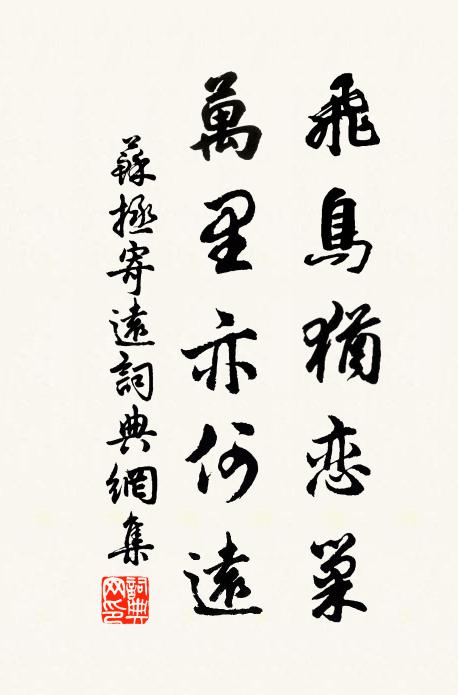 飛鳥猶恋巢
萬里亦何遠
蘇拯寄遠詞典網集
詞典网印